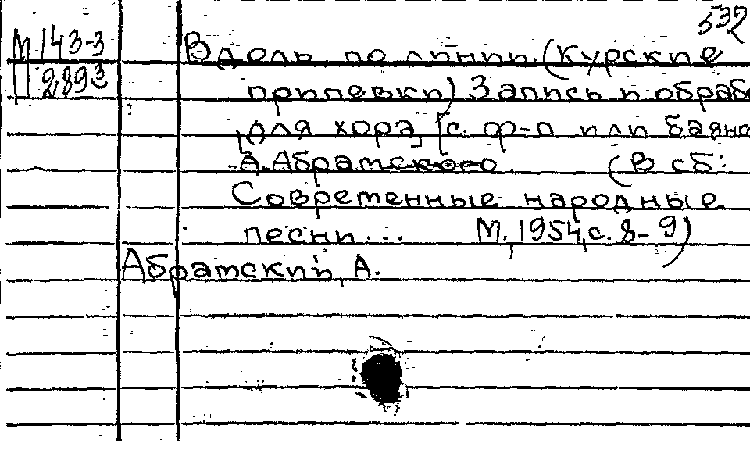 532
М 143-3
2893
Вдоль по линии (Курские
припевки) Запись и обраб
для хора [с. ф-п или баяно
А. Абрамского (В сб:
Современные народные
песни... М., 1954, с. 8-9)
Абрамский, А.